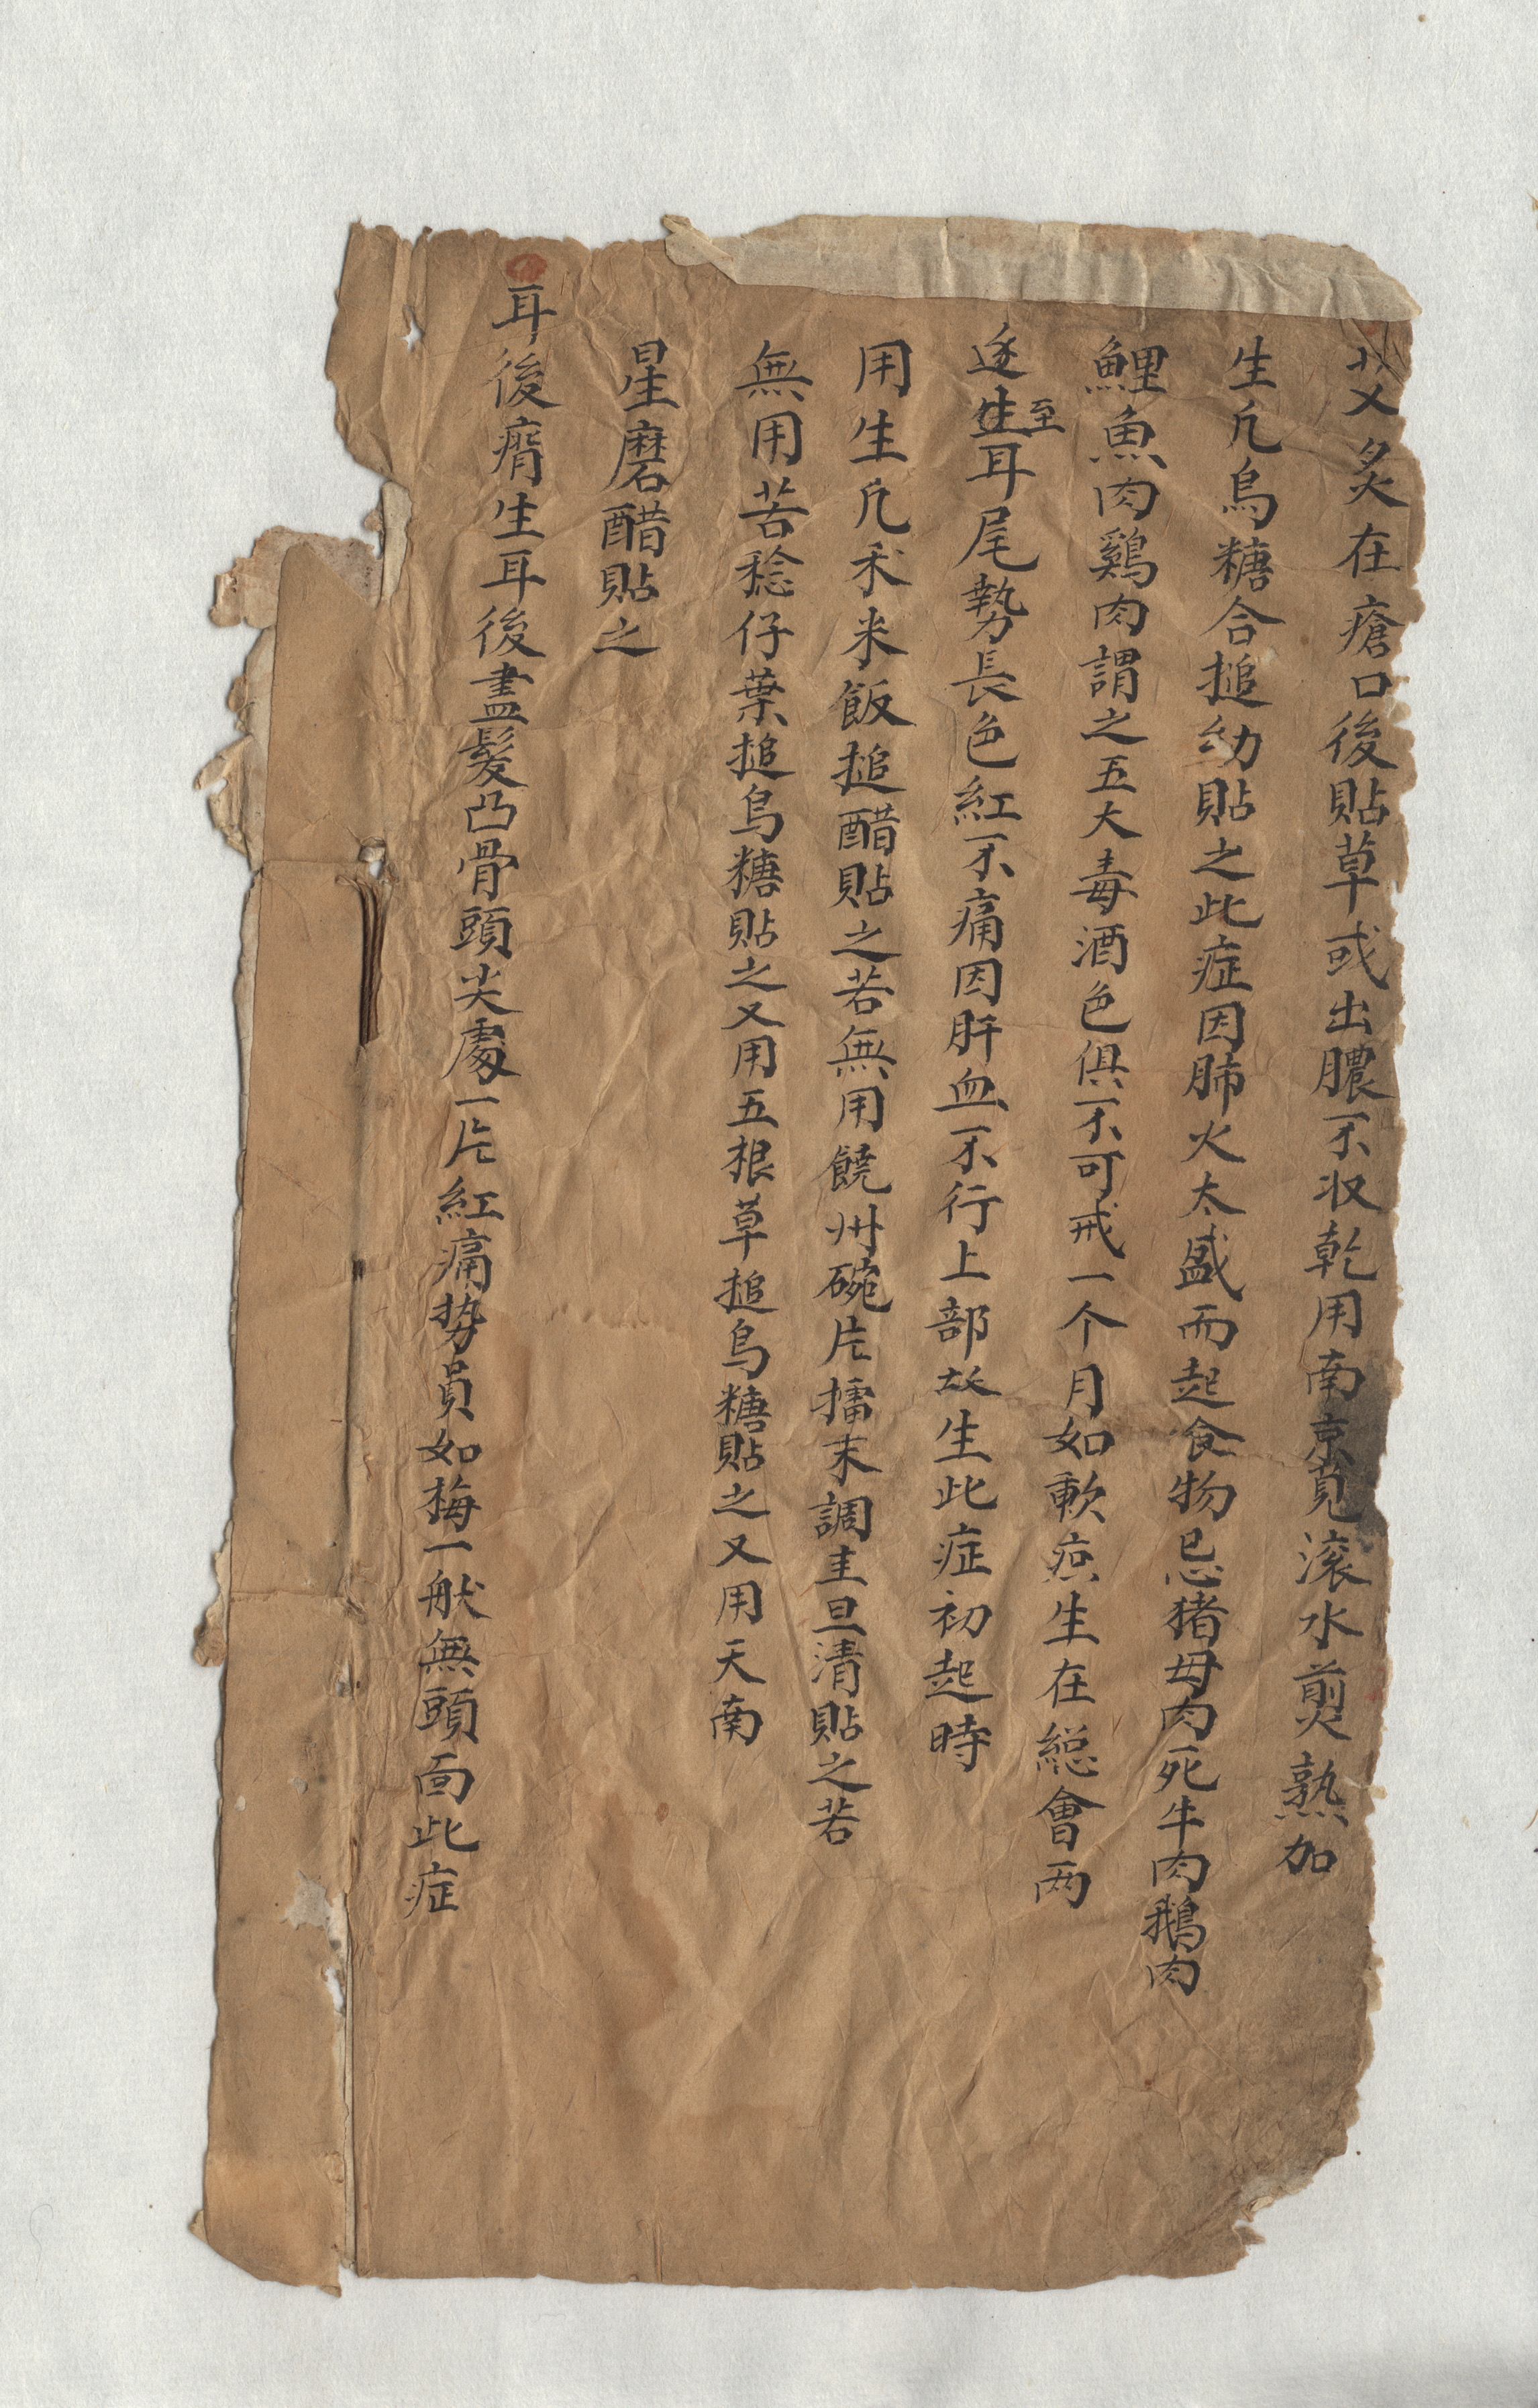 艾炙在瘡口後貼草或出膿不收乾用南京莧滚水煎熟加
生凡烏糖合搥幼貼之此症因肺火太盛而起食物忌猪母肉死牛肉鵝肉
鯉魚肉鷄肉謂之五大毒酒色俱不可戒一个月如軟疬生在總會两
逐生至耳尾勢長色紅不痛因肝血不行上部故生此症初起時
用生凡米飯搥醋貼之若無用饒州碗片擂末調圭旦清貼之若
無用苦稔仔葉搥烏糖貼之又用五根草搥烏糖貼之又用天南
星磨醋貼之
耳後癰生耳後盡髮凸骨頭尖處一片紅痛势員如梅一般無頭面此症